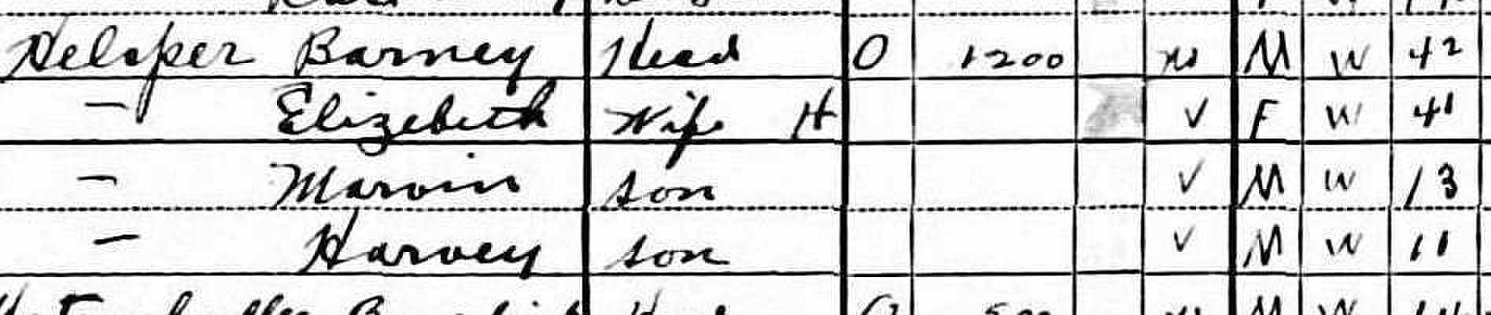 Helsper Barney Head O 1200 M W 42
— Elizebeth Wife H ✓ F W 41
— Marvin son ✓ M W 13
— Harvey son ✓ M W 11